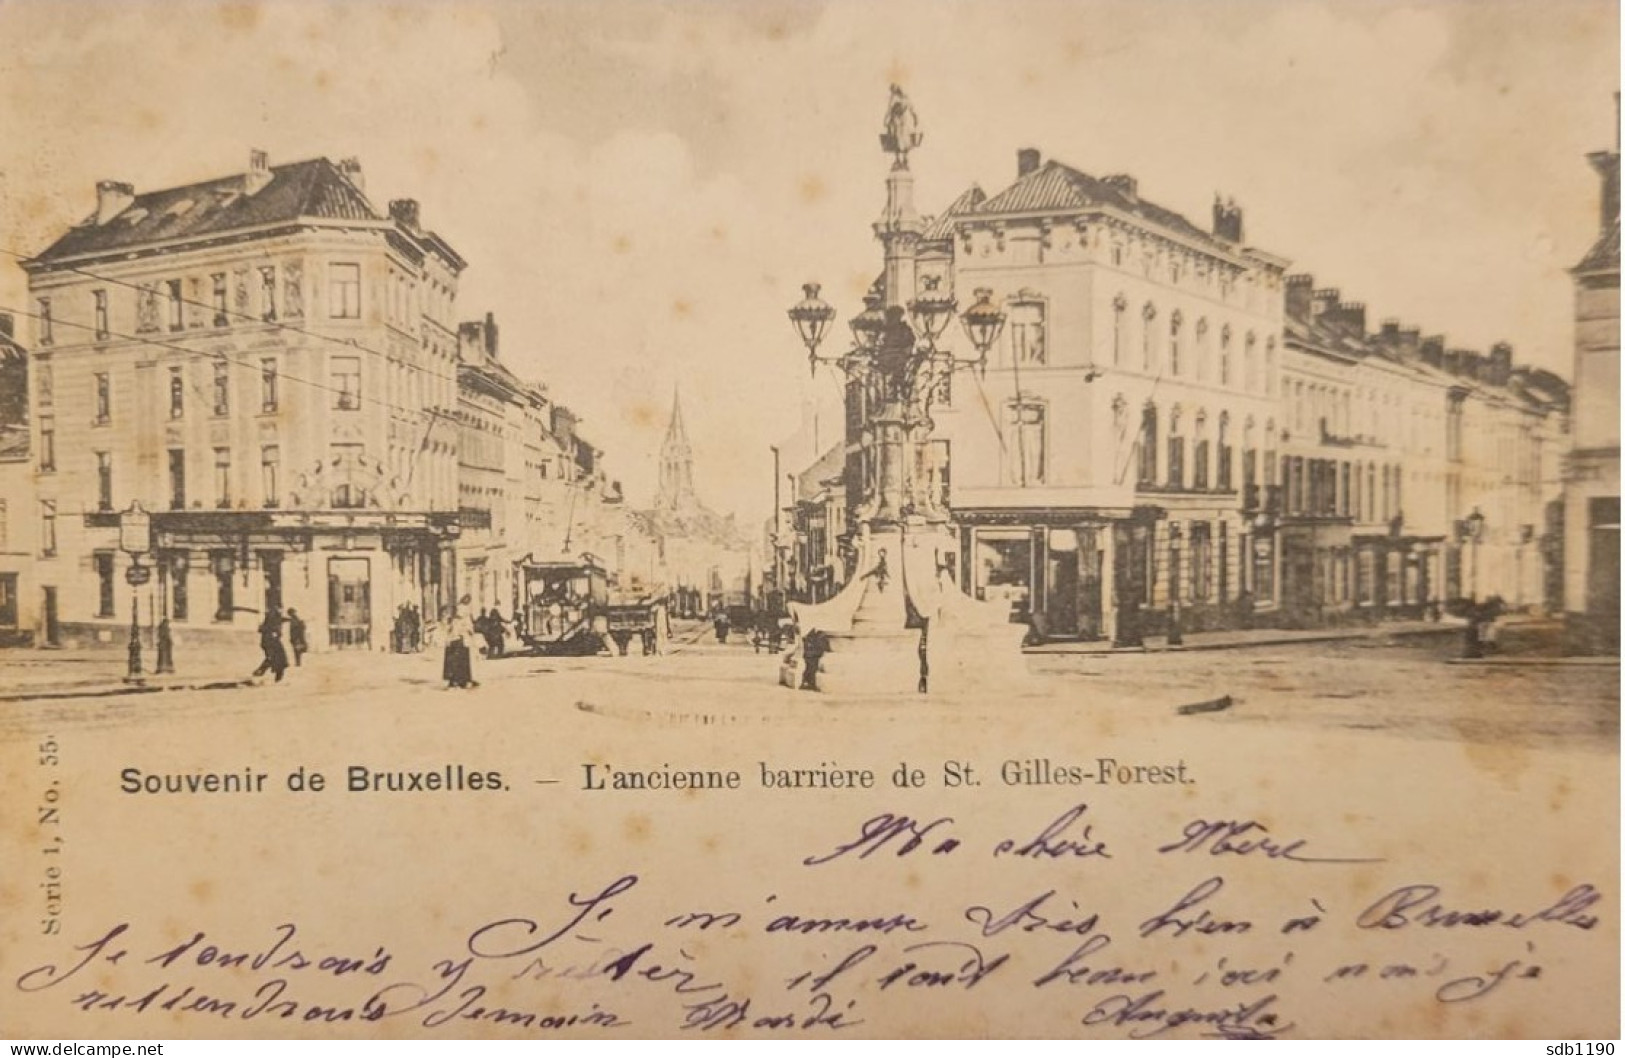 Souvenir de Bruxelles. — L'ancienne barrière de St. Gilles-Forest.
Serie 1, No. 55
Ma chère Mere
Je m'amuse très bien à Bruxelles
Je voudrais y rester il fait beau ici mais je
retiendrais demain Mardi Augusta
www.delcampe.net
sdb1190